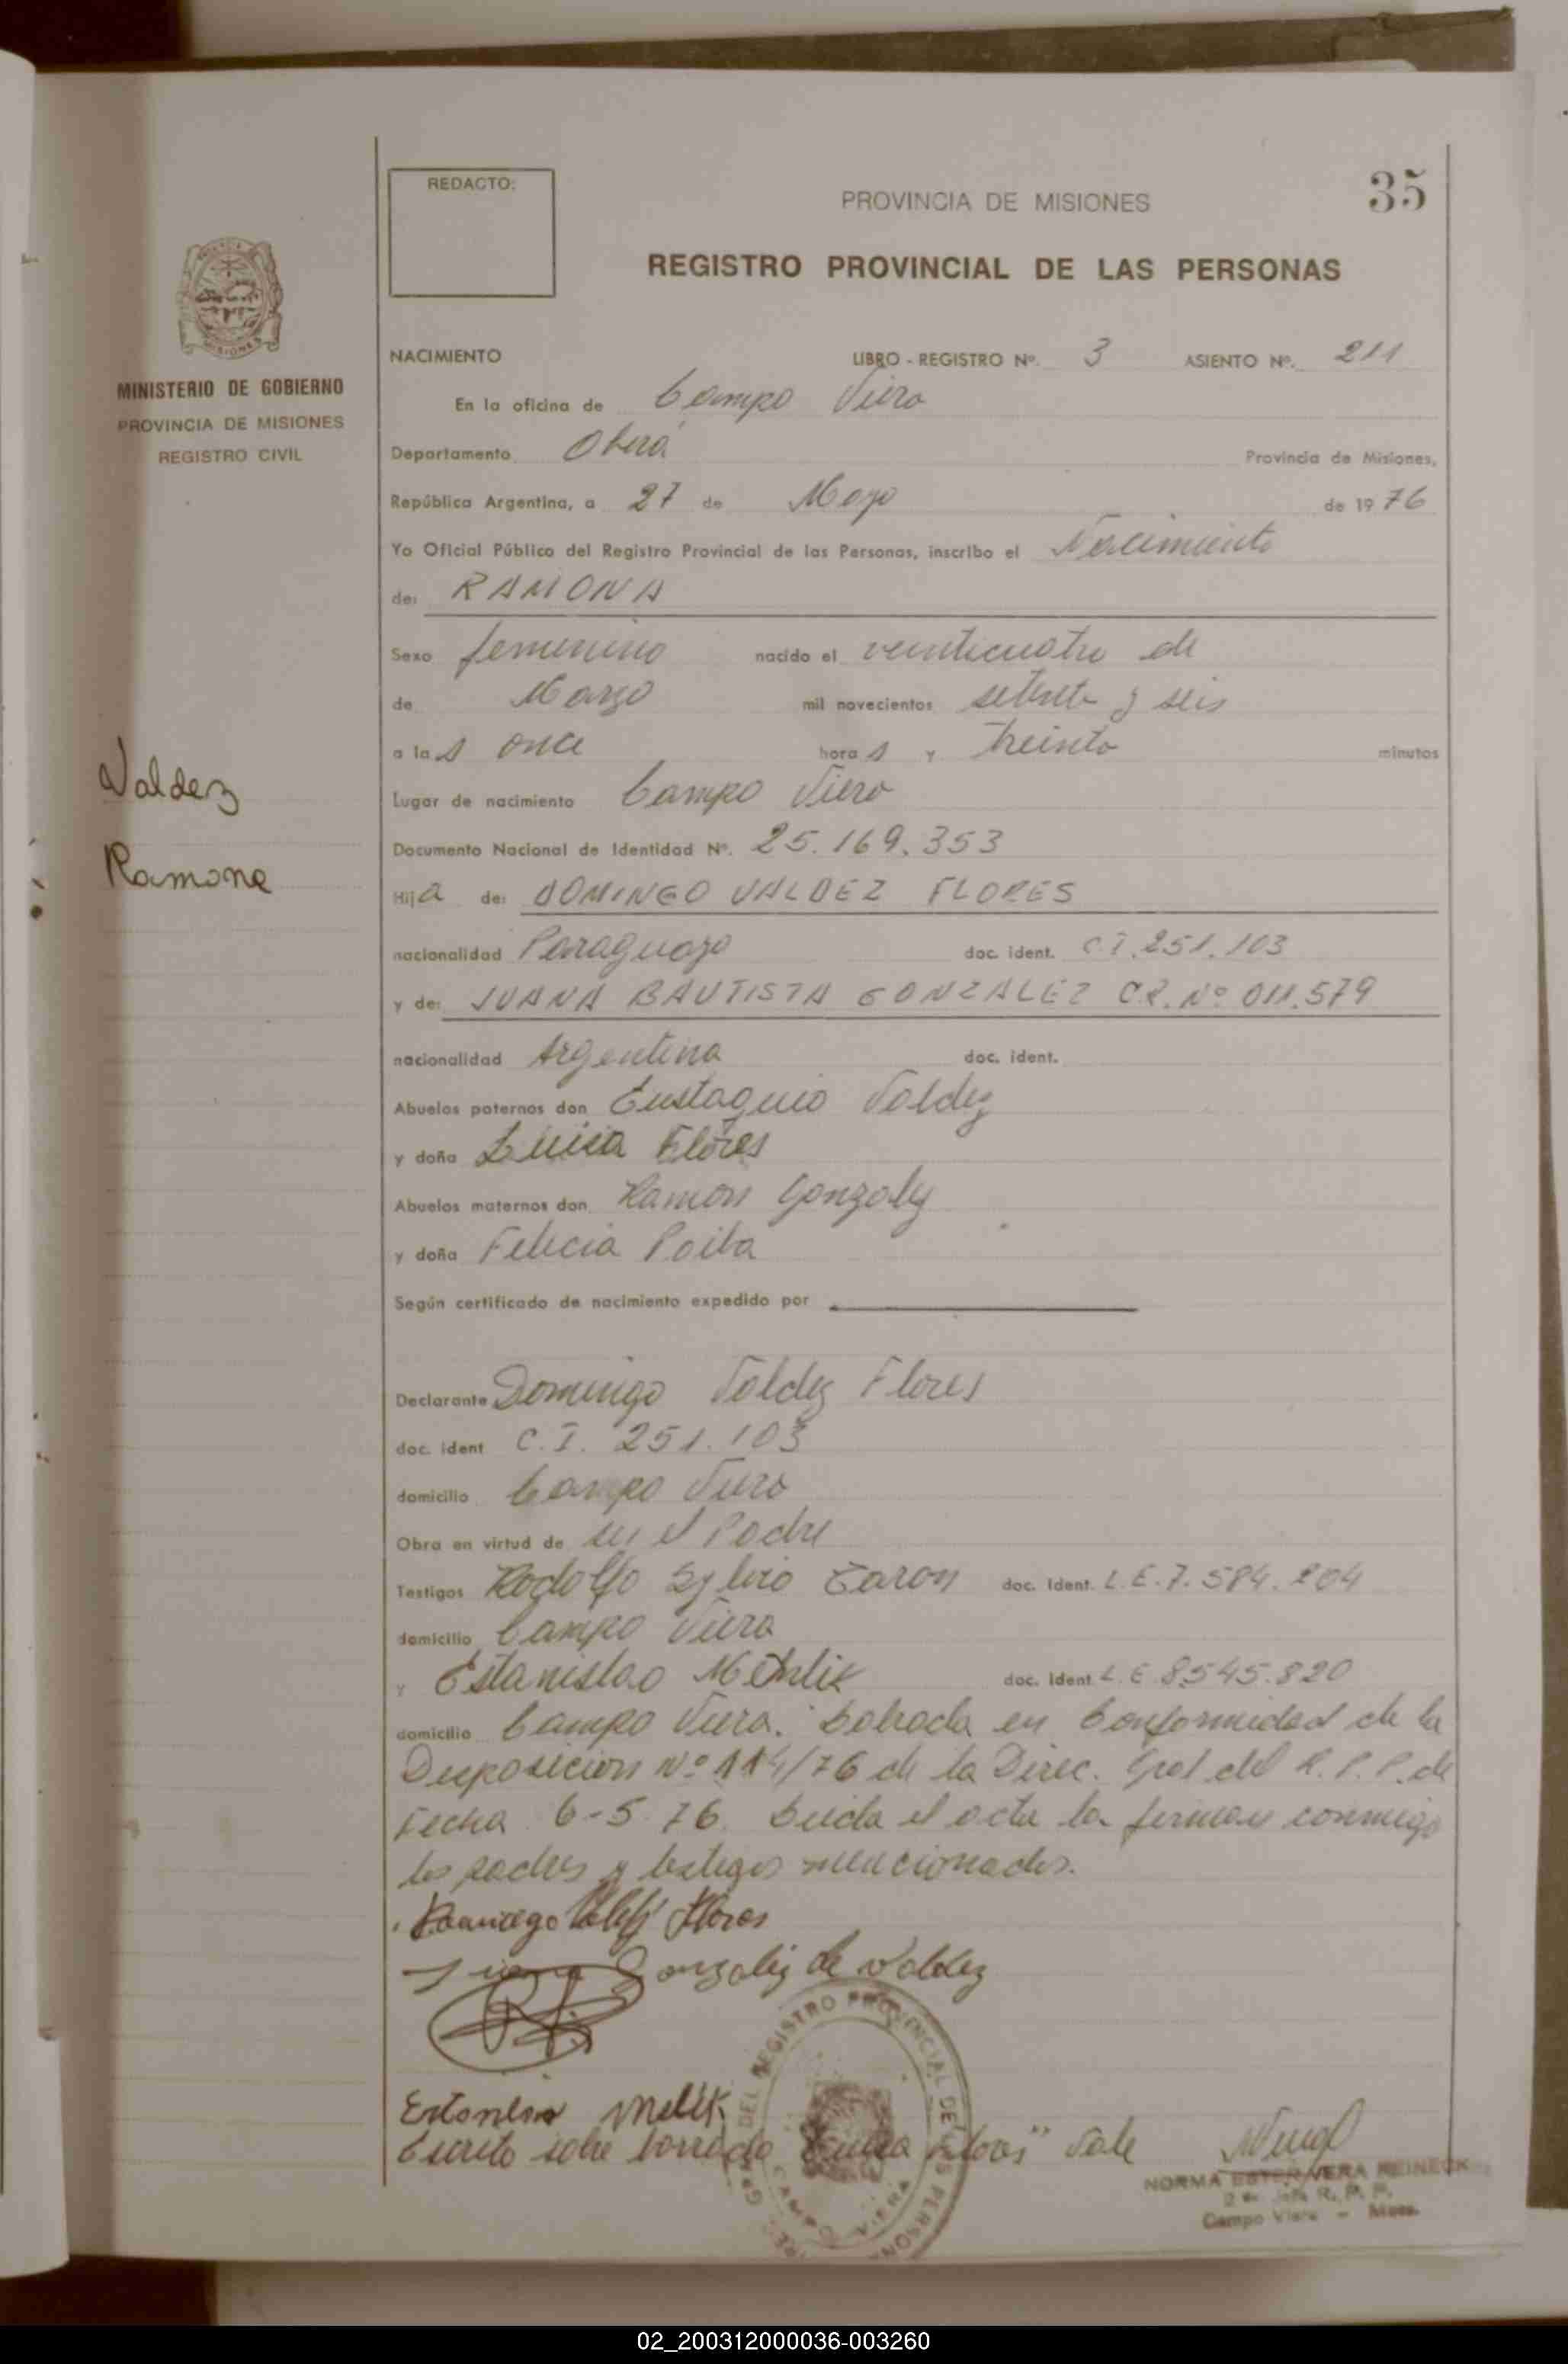 REDACTO:
PROVINCIA DE MISIONES
35
REGISTRO PROVINCIAL DE LAS PERSONAS
MINISTERIO DE GOBIERNO
PROVINCIA DE MISIONES
REGISTRO CIVIL
NACIMIENTO LIBRO - REGISTRO Nº. 3 ASIENTO Nº. 211
En la oficina de Campo Viera
Departamento Oberá Provincia de Misiones,
República Argentina, a 27 de Mayo de 1976
Yo Oficial Público del Registro Provincial de las Personas, inscribo el Nacimiento
de: RAMONA
Sexo femenino nacido el veinticuatro de
de Marzo mil novecientos setenta y seis
a las once horas y treinta minutos
Valdez
Ramona
Lugar de nacimiento Campo Viera
Documento Nacional de Identidad Nº. 25.169.353
Hija de: DOMINGO VALDEZ FLORES
nacionalidad Paraguayo doc. ident. C.I. 251.103
y de: JUANA BAUTISTA GONZALEZ C.R. Nº 011.579
nacionalidad Argentina doc. ident.
Abuelos paternos don Eustaquio Valdez
y doña Luisa Flores
Abuelos maternos don Ramón Gonzalez
y doña Felicia
Según certificado de nacimiento expedido por
Declarante Domingo Valdez Flores
doc. ident C.I. 251.103
domicilio Campo Viera
Obra en virtud de ser el Padre
Testigos Rodolfo Sylvio Zaron doc. Ident. L.E. 7.584.204
domicilio Campo Viera
y Estanislao doc. Ident L.E 8.545.820
domicilio Campo Viera. Labrada en Conformidad de la
Disposición Nº 114/76 de la Direc. Gral del R.P.P. de
Fecha 6-5-76. Leida el acta la firman conmigo
los padres y testigos mencionados.
Domingo Flores
Juana Gonzalez de Valdez
REGISTRO PROVINCIAL DE LAS PERSONAS
CAMPO VIERA
Escrito sobre borrado "Luisa Flores" Vale
NORMA ESTER VERA REINECK
R. P. P.
Campo Viera - Mnes.
02_200312000036-003260